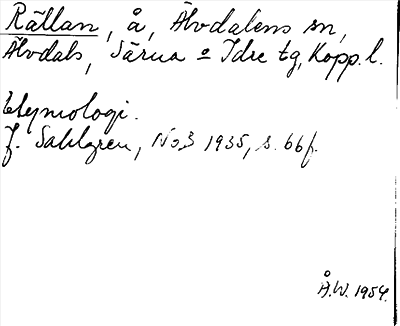 Rällan, å, Älvdalens sn,
Älvdals, Särna o Idre tg, Kopp. l.
Etymologi.
J. Sahlgren, NoB 1935, s. 66f.
Å.W. 1954.